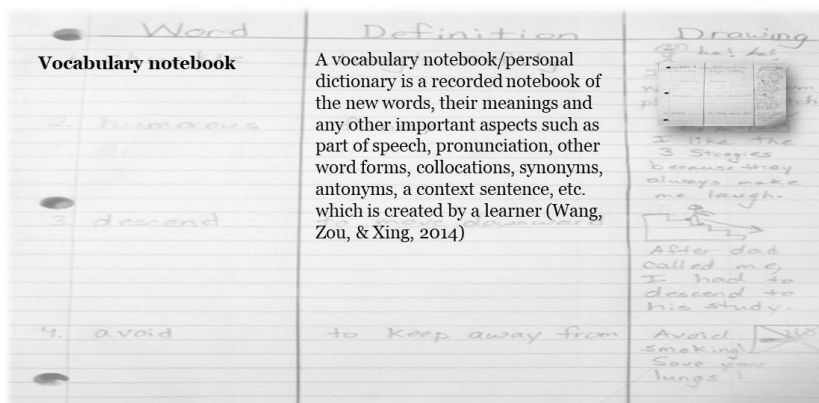 Word Definition Drawing
Vocabulary notebook
A vocabulary notebook/personal
dictionary is a recorded notebook of
the new words, their meanings and
any other important aspects such as
part of speech, pronunciation, other
word forms, collocations, synonyms,
antonyms, a context sentence, etc.
which is created by a learner (Wang,
Zou, & Xing, 2014)
ha! ha!
2. humorous
I like the
3 Stoogies
because they
always make
me laugh.
3. descend
to move downward
After dad
called me,
I had to
descend to
his study.
4. avoid
to keep away from
Avoid
smoking!
Save your
lungs!